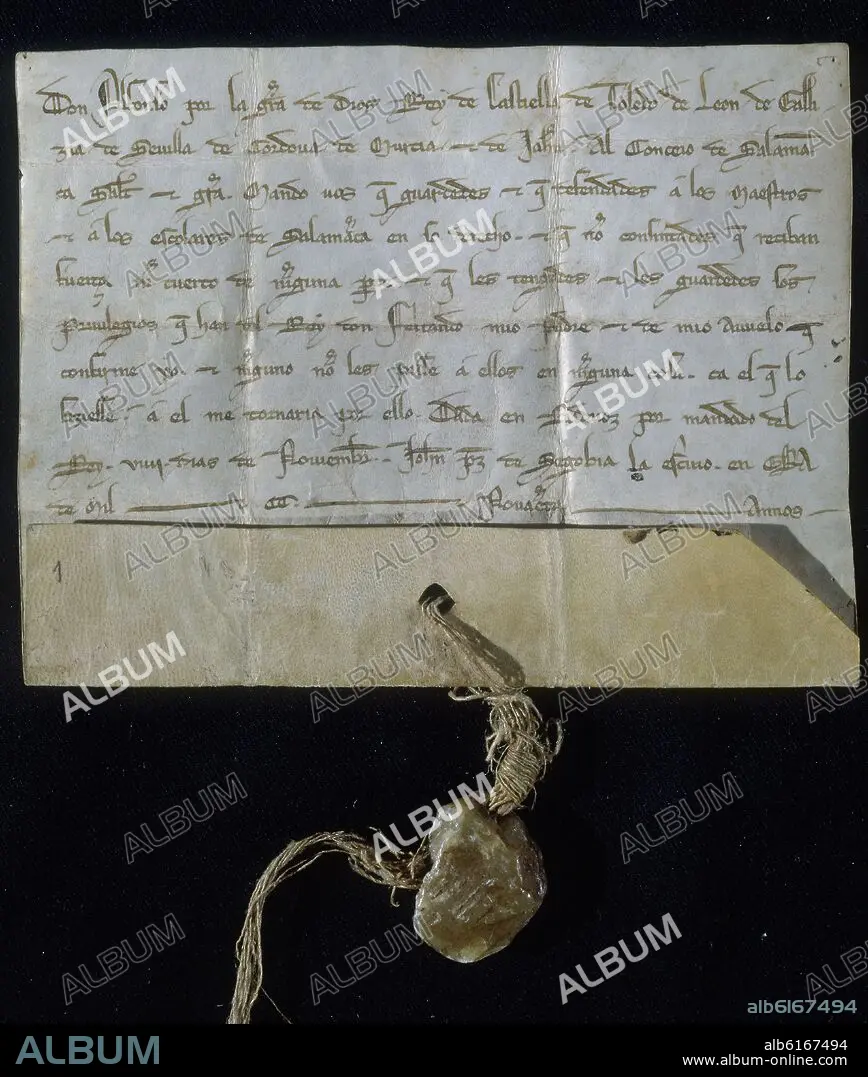 Don Alfonso por la gra de Dios Rey de Castiella de Toledo de Leon de Galli
zia de Sevilla de Cordova de Murcia et de Jahn Al Conceio de Salaman
ca Salt et gra. Mando vos q guardedes et q defendades a los Maestros
et a los escolares de Salamaca en so derecho. et q no consintades q reciban
fuerça nin tuerto de niguna et q les tengades et les guardedes los
privilegios q han del Rey don Ferrando mio padre et de mio avuelo q
confirme yo. et niguno no les passe a ellos en niguna ca el q lo
fiziesse. a el me tornaria por ello. Dada en por mandado del
Rey. viiii. dias de Noviembr. Johan pz de Segobia la escivio. en ERA
de Mil CC. Novaeta Annos
1
ALBUM
alb6167494
ALBUM
alb6167494
www.album-online.com